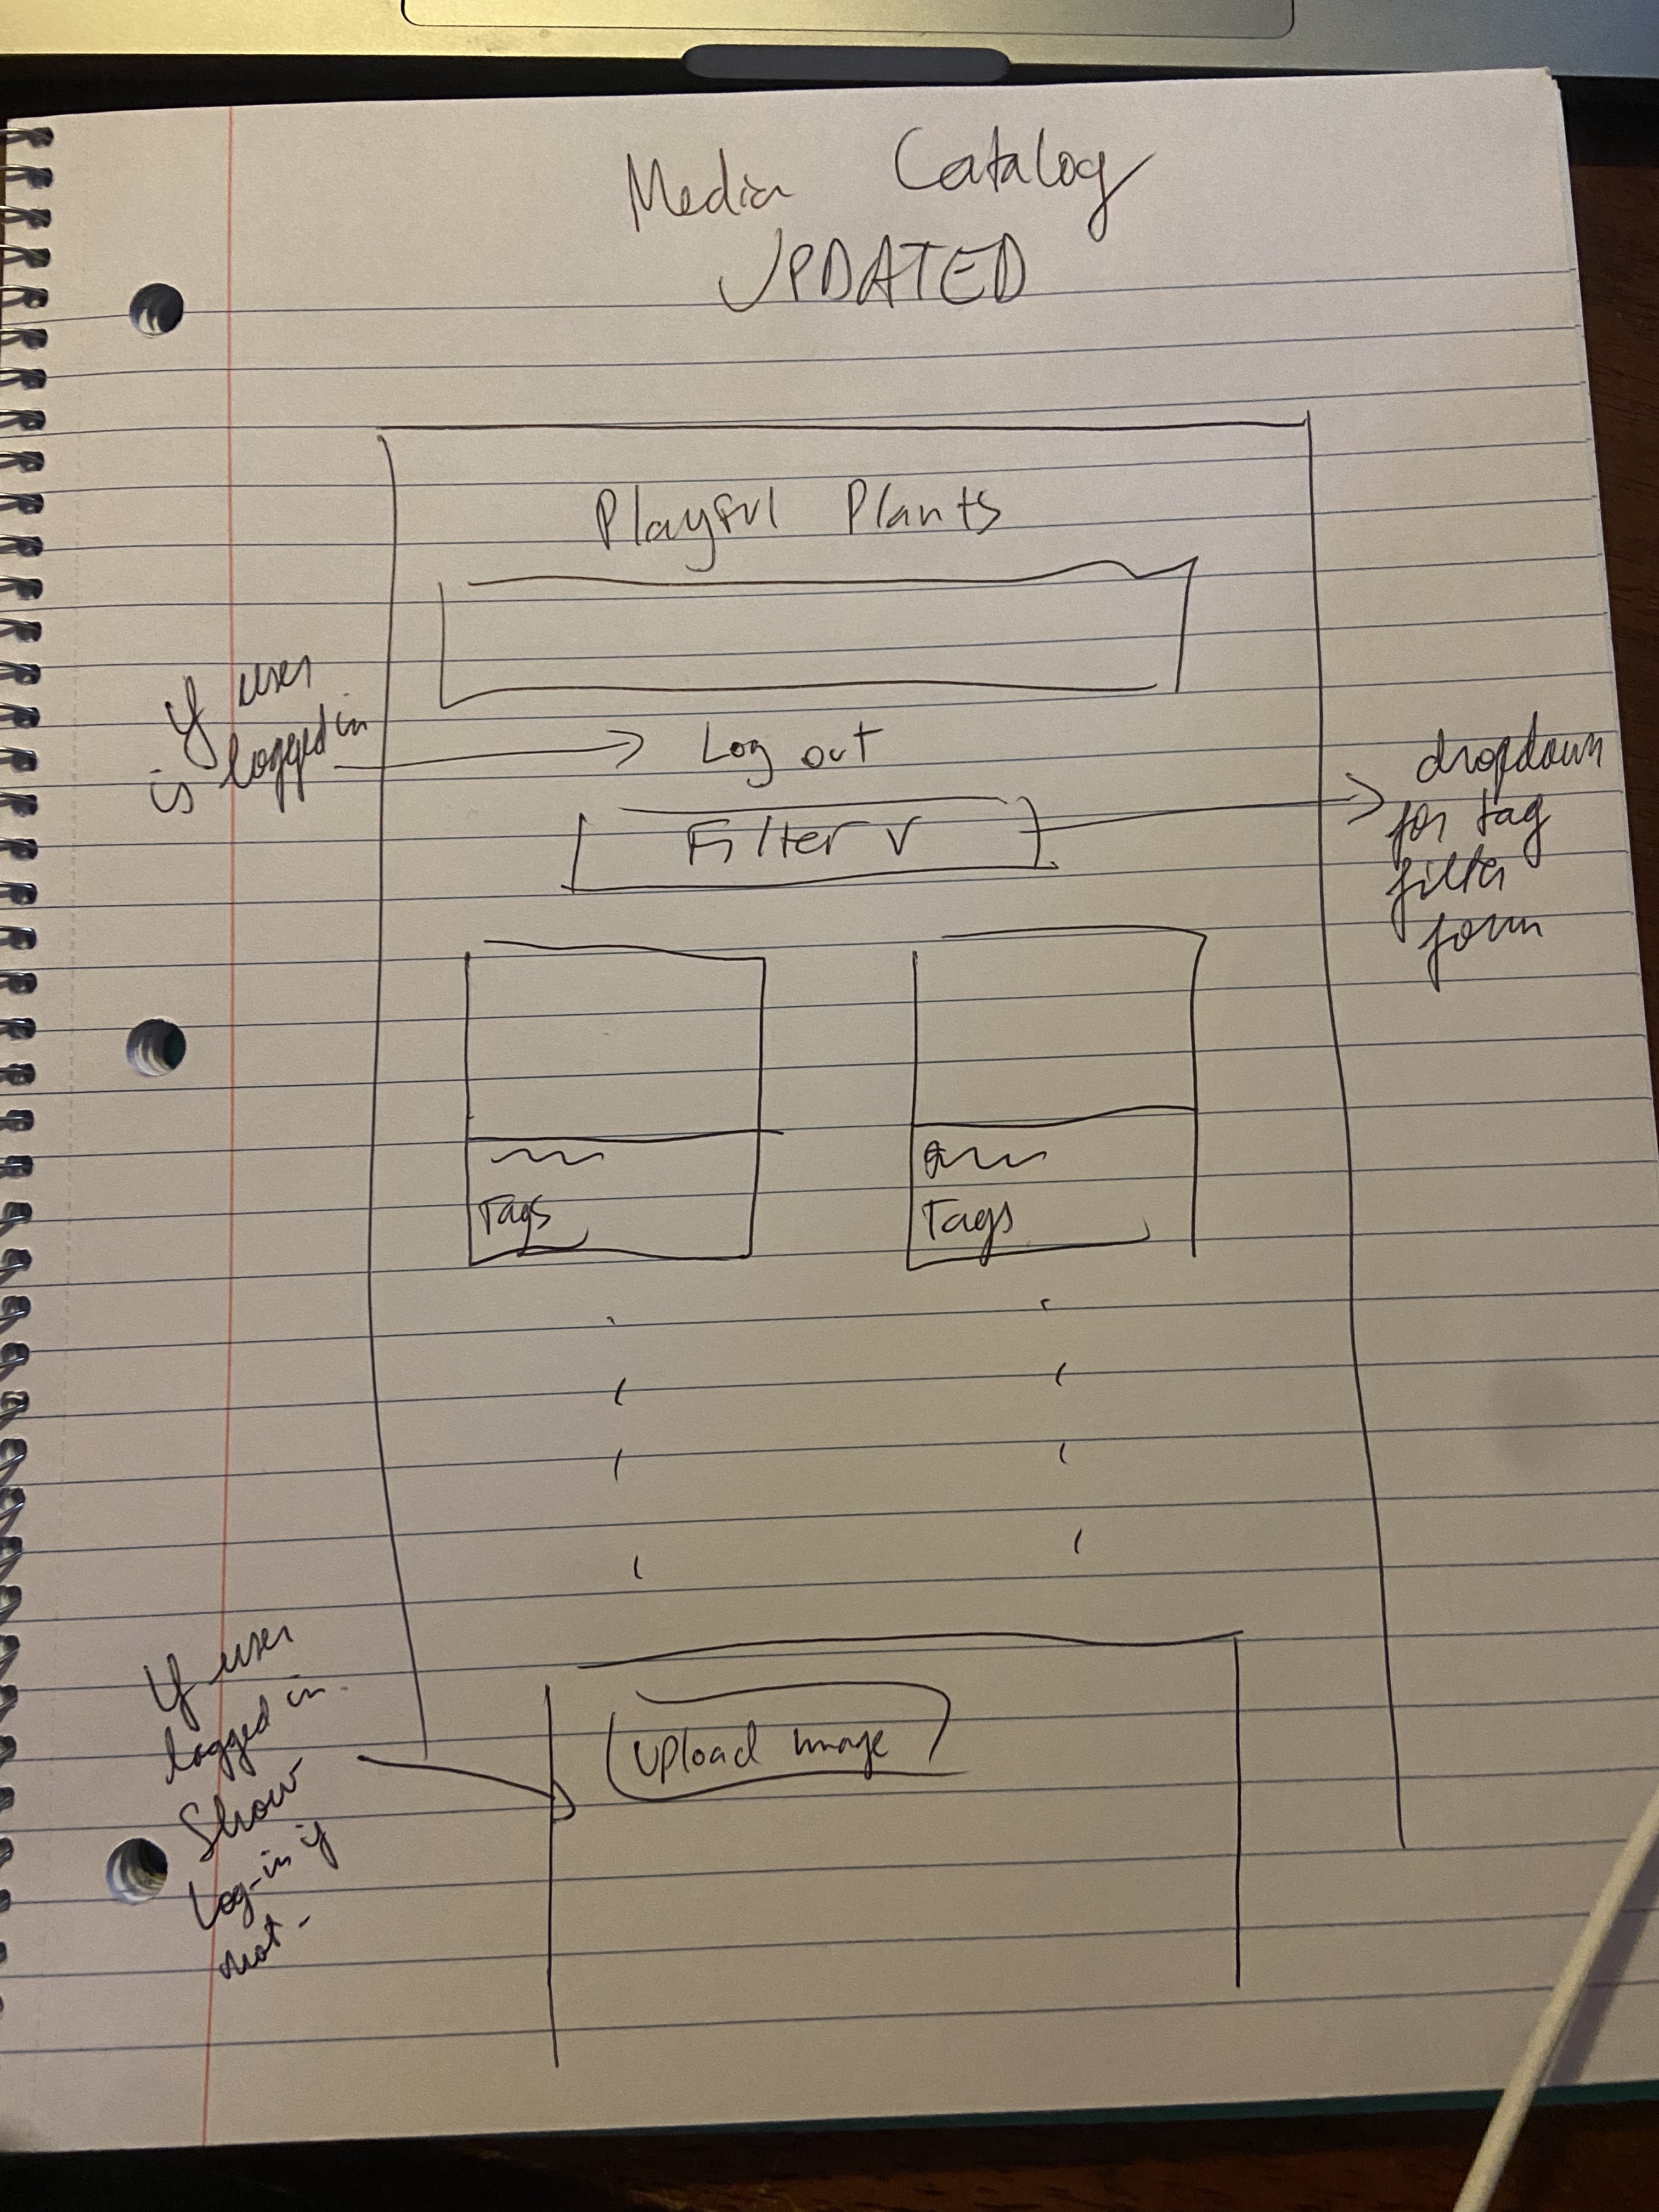 Media Catalog
UPDATED
Playful Plants
If user
is logged in
Log out
Filter v
dropdown
for tag
filter
form
Tags
Tags
If user
logged in.
Show
Log-in if
not-
Upload image